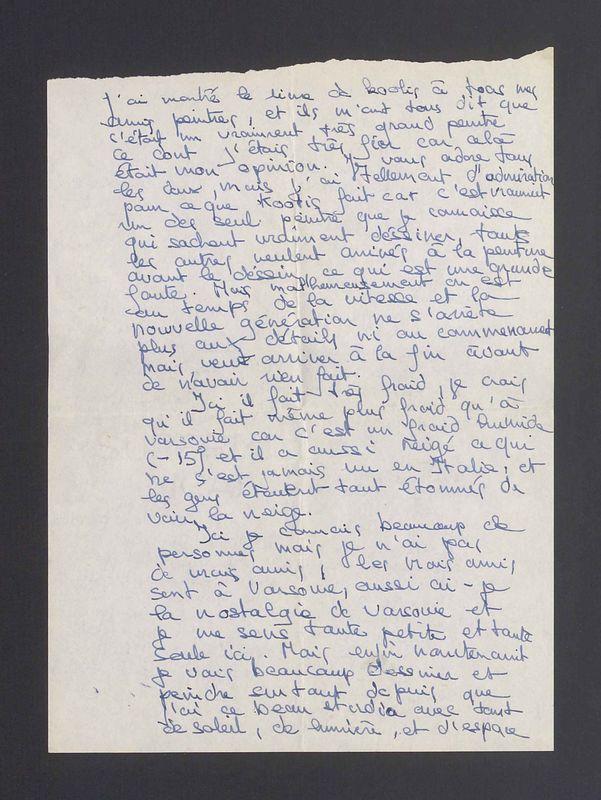 J'ai montré le livre de Kootis à tous mes
amis peintres, et ils m'ont tous dit que
c'était un vraiment très grand peintre
ce dont j'étais très fier car celà
était mon opinion. Je vous adore tous
les deux mais j'ai tellement d'admiration
pour ce que Kootis fait car c'est vraiment
un des seul peintre que je connaisse
qui sachent vraiment dessiner, touts
les autres veulent arrivés à la peinture
avant le dessin ce qui est une grande
faute. Mais malheureusement on est
au temps de la vitesse et la
nouvelle génération ne s'arrète
plus aux détails ni au commencement
mais veut arriver à la fin avant
de n'avoir rien fait.
Ici il fait très froid, je crois
qu'il fait même plus froid qu'à
Varsovie car c'est un froid humide
(-15) et il a aussi neigé ce qui
ne s'est jamais vu en Italie, et
les gens étaient tout étonnés de
voir la neige.
Ici je connais beaucoup de
personnes mais je n'ai pas
de vrais amis, les vrais amis
sont à Varsovie, aussi ai-je
la nostalgie de Varsovie et
je me sens toute petite et toute
seule ici. Mais enfin maintenant
je vais beaucoup dessiner et
peindre surtout depuis que
j'ai ce beau studio avec tant
de soleil, de lumière, et d'espace